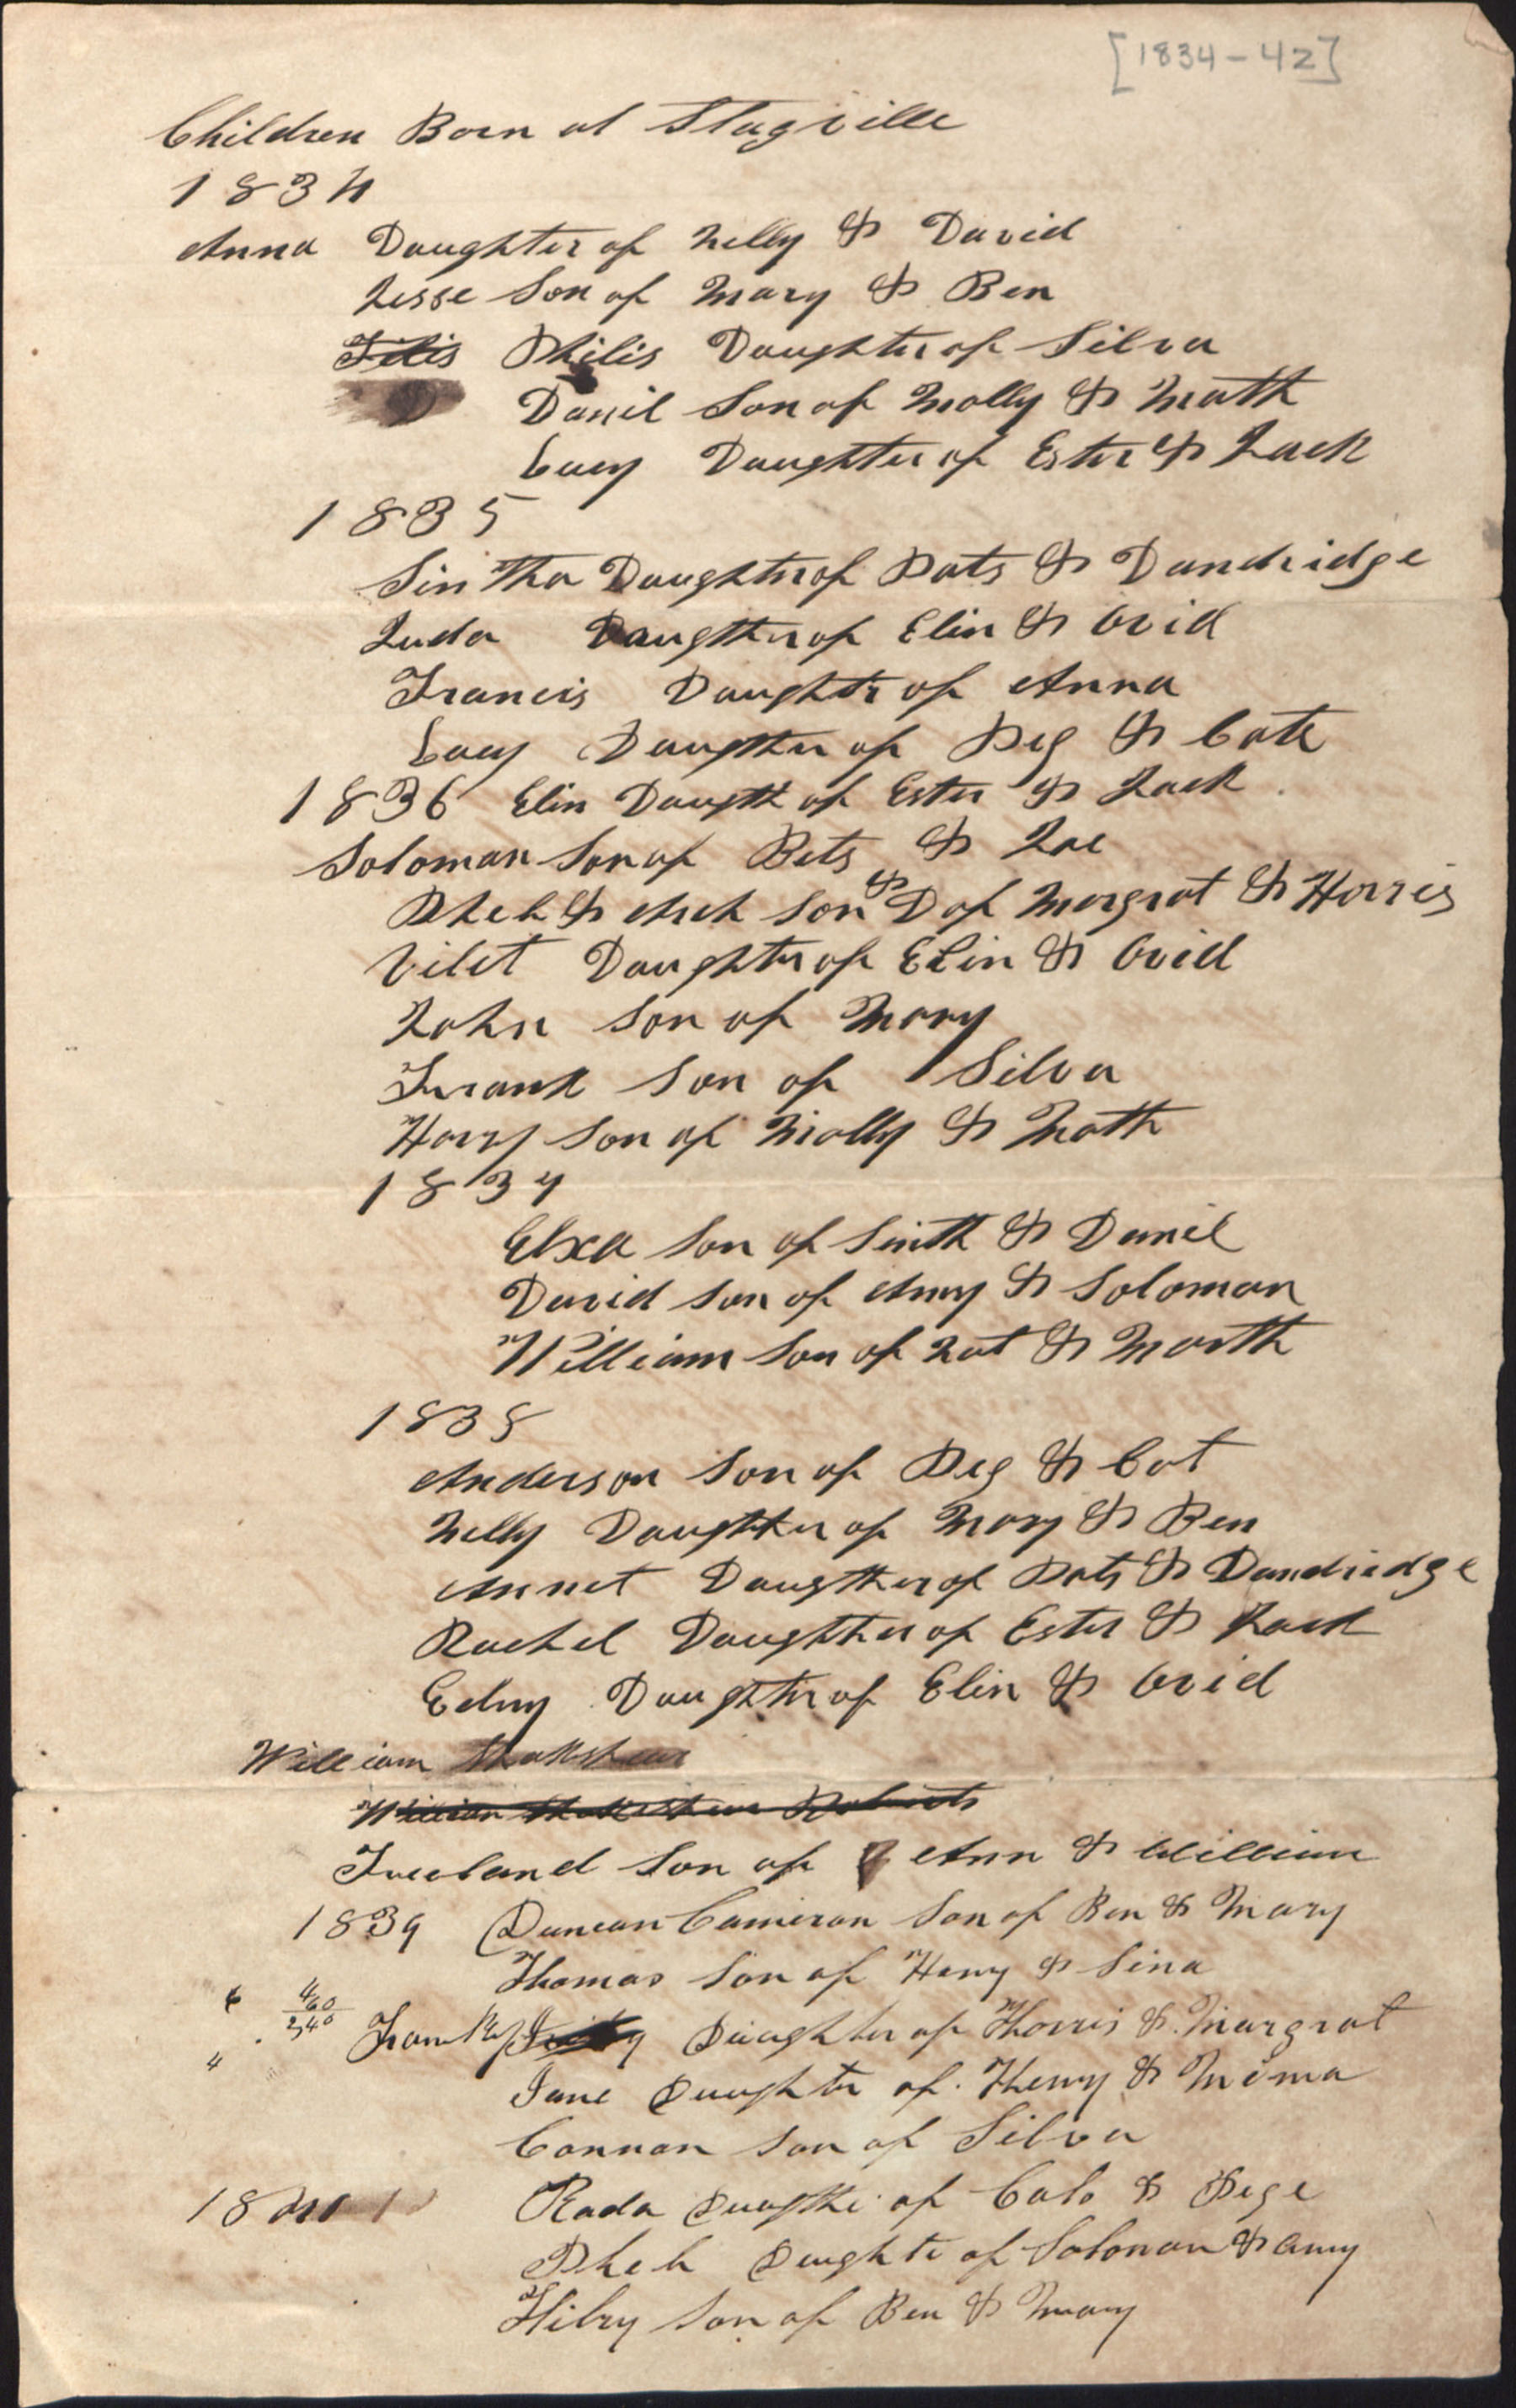 [1834-42]
Children Born at Stagville
1834
Anna Daughter of Nelly & David
Jesse Son of Mary & Ben
Filis Philis Daughter of Silva
Danil Son of Molly & Math
Lucy Daughter of Ester & Jack
1835
Sintha Daughter of Pats & Dandridge
Juda Daugther of Elin & Ovid
Francis Daughtr of Anna
Lucy Daugther of Peg & Cate
1836 Elin Daugth of Ester & Jack
Soloman Son of Bets & Joe
Pheb & Arch Son & D of Margrat & Horris
Vilet Daughter of Elin & Ovid
John Son of Mary
Frank Son of Silva
Harry Son of Molly & Math
1837
Son of Sinth & Danil
David Son of Amy & Soloman
William Son of Nat & Marth
1838
Anderson Son of Peg & Cat
Nelly Daughter of Mary & Ben
Annet Daugther of Pats & Dandridge
Rachel Daughther of Ester & Jack
Edny Daughter of Elin & Ovid
William
William
Freeland Son of Ann & William
1839 Duncan Cameron Son of Ben & Mary
Thomas Son of Hany & Sina
460
240
Daughter of Horris & Margrat
Jane Daughter of Henry & Mima
Cannon Son of Silva
1840 Rada Daugthe of Cato & Pege
Pheb Daughte of Solomon & Amy
Hilry Son of Ben & Mary